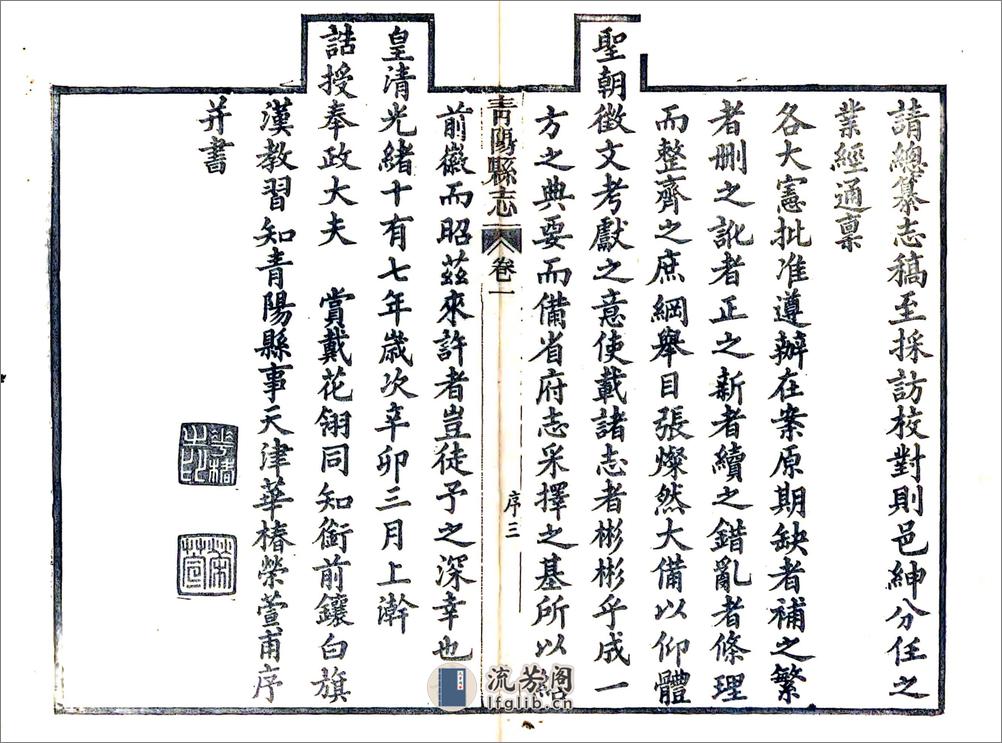 請總纂志稿至採訪校對則邑紳分任之
業經通稟
各大憲批准遵辦在案原期缺者補之繁
者刪之訛者正之新者續之錯亂者條理
而整齊之庶綱舉目張燦然大備以仰體
聖朝徵文考獻之意使載諸志者彬彬乎成一
方之典要而備省府志采擇之基所以
青陽縣志
卷一
序三
前徽而昭茲來許者豈徒予之深幸也
皇清光緒十有七年歲次辛卯三月上澣
誥授奉政大夫 賞戴花翎同知銜前鑲白旗
漢教習知青陽縣事天津華椿榮萱甫序
并書
華椿之印
榮萱
流芳阁
lfglib.cn